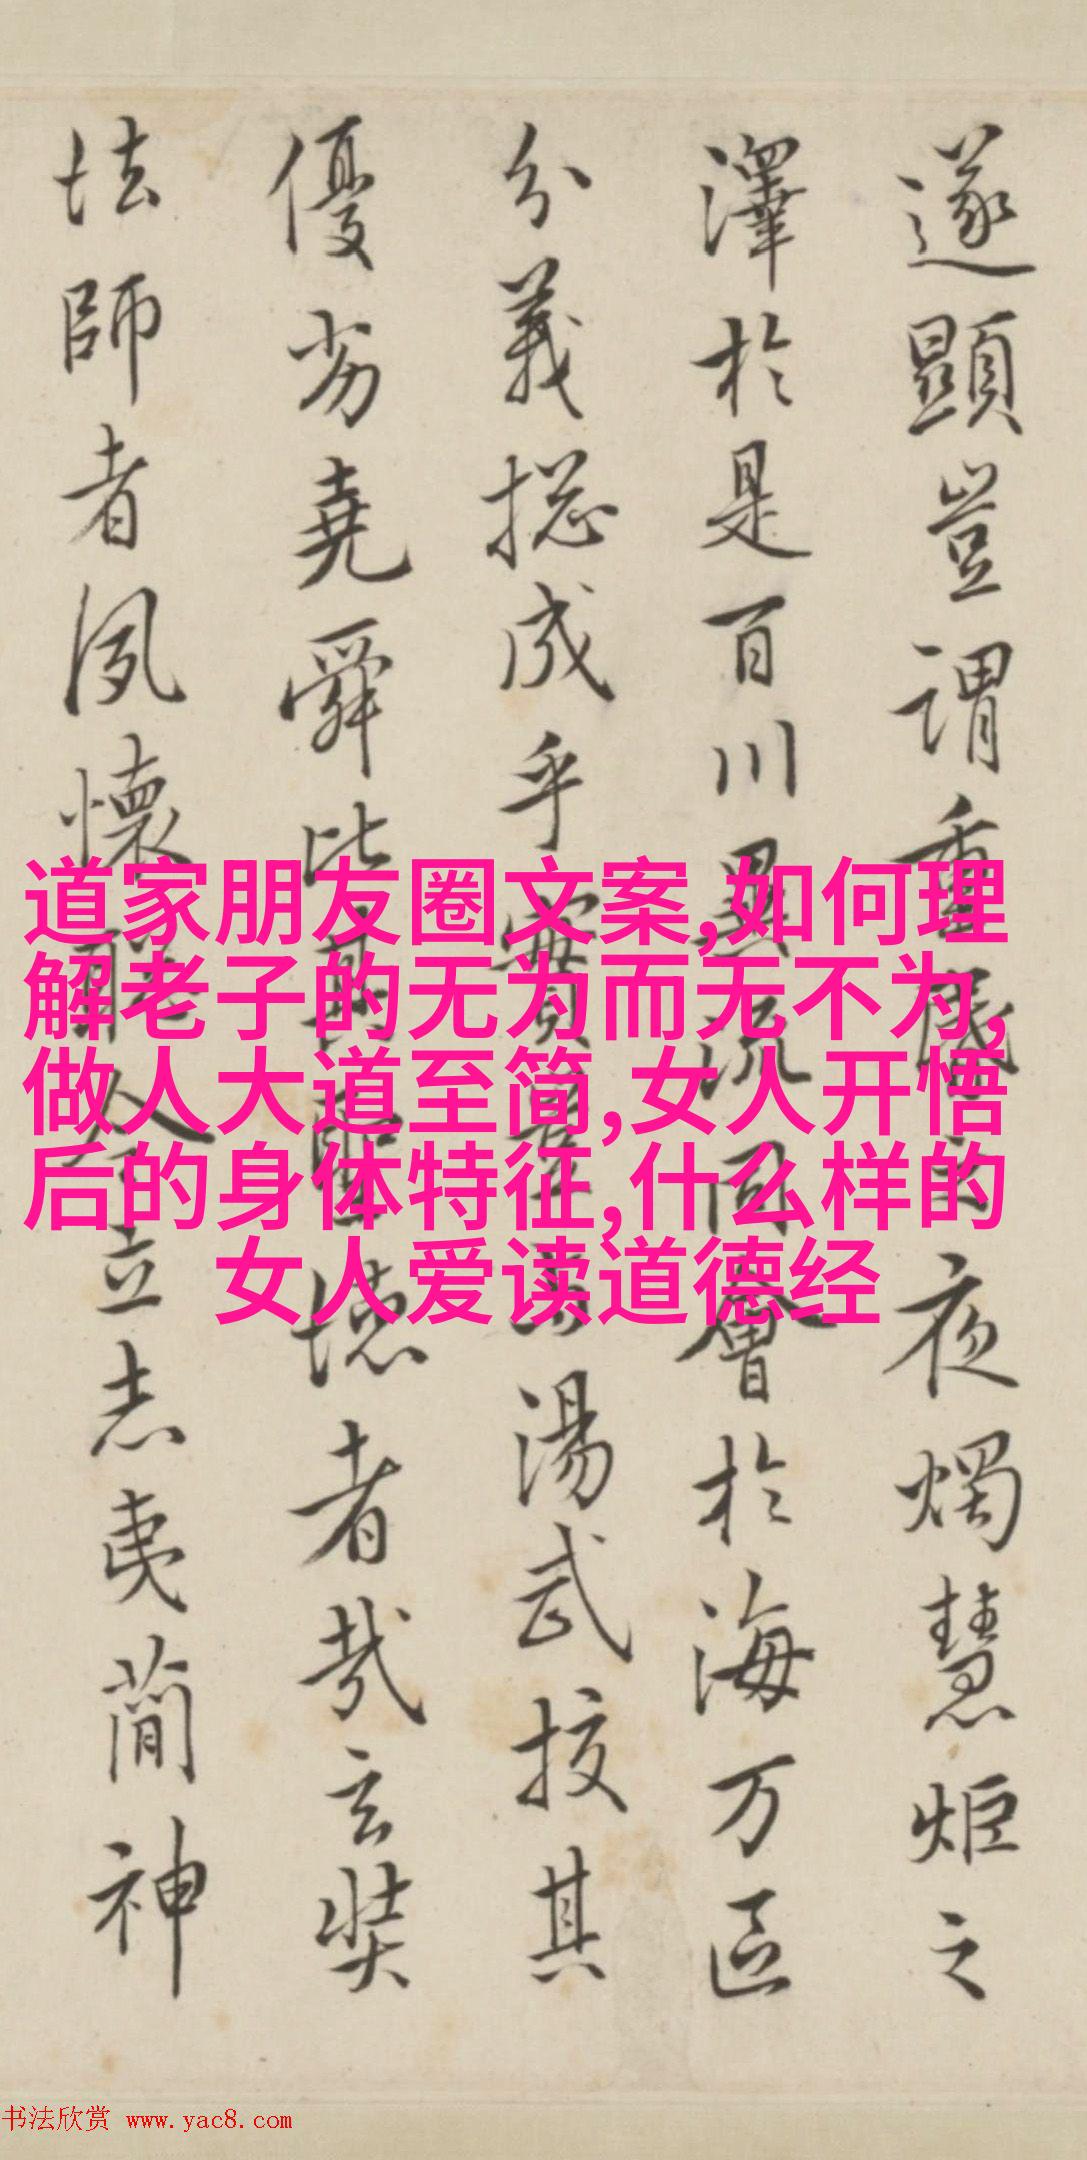 遂顯豈謂重昏之夜燭慧炬之
澤於是百川異流同會於海万區
分義捴成乎實豈与湯武挍其
優劣堯舜比其聖德者哉玄奘
法師者夙懷聡令立志夷簡神
道家朋友圈文案,如何理
解老子的无为而无不为,
做人大道至简,女人开悟
后的身体特征,什么样的
女人爱读道德经
书法欣赏 www.yac8.com